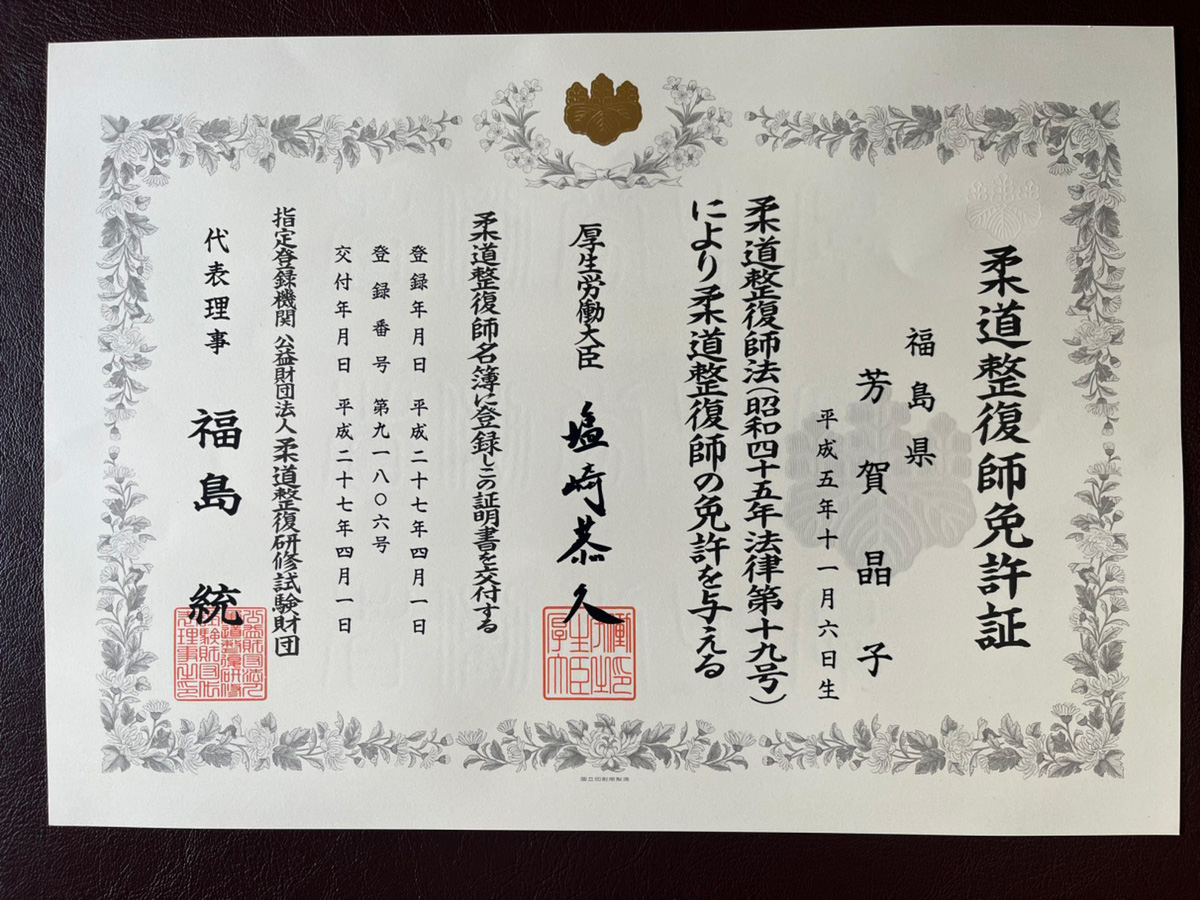 柔道整復師免許証
福島県
芳賀晶子
平成五年十一月六日生
柔道整復師法(昭和四十五年法律第十九号)
により柔道整復師の免許を与える
厚生労働大臣 塩崎恭久
柔道整復師名簿に登録しこの証明書を交付する
登録年月日 平成二十七年四月一日
登録番号 第九一八〇六号
交付年月日 平成二十七年四月一日
指定登録機関 公益財団法人柔道整復研修試験財団
代表理事 福島統
国立印刷局製造